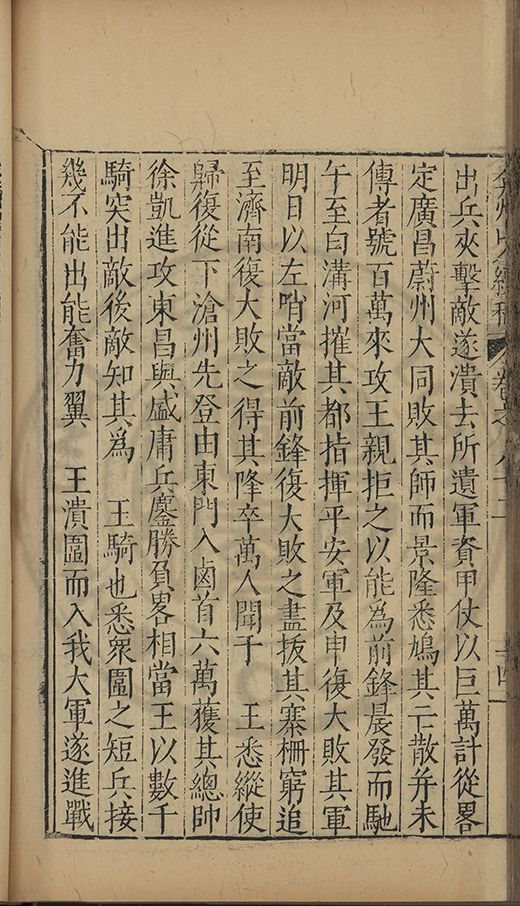 弇州史續稿 卷之八十二 十四
出兵夾擊敵遂潰去所遺軍資甲仗以巨萬計從畧
定廣昌蔚州大同敗其師而景隆悉鳩其亡散并未
傳者號百萬來攻王親拒之以能為前鋒晨發而馳
午至白溝河摧其都指揮平安軍及申復大敗其軍
明日以左哨當敵前鋒復大敗之盡拔其寨柵窮追
至濟南復大敗之得其降卒萬人聞于 王悉縱使
歸復從下滄州先登由東門入鹵首六萬獲其總帥
徐凱進攻東昌與盛庸兵鏖勝負畧相當王以數千
騎突出敵後敵知其為 王騎也悉衆圍之短兵接
幾不能出能奮力翼 王潰圍而入我大軍遂進戰